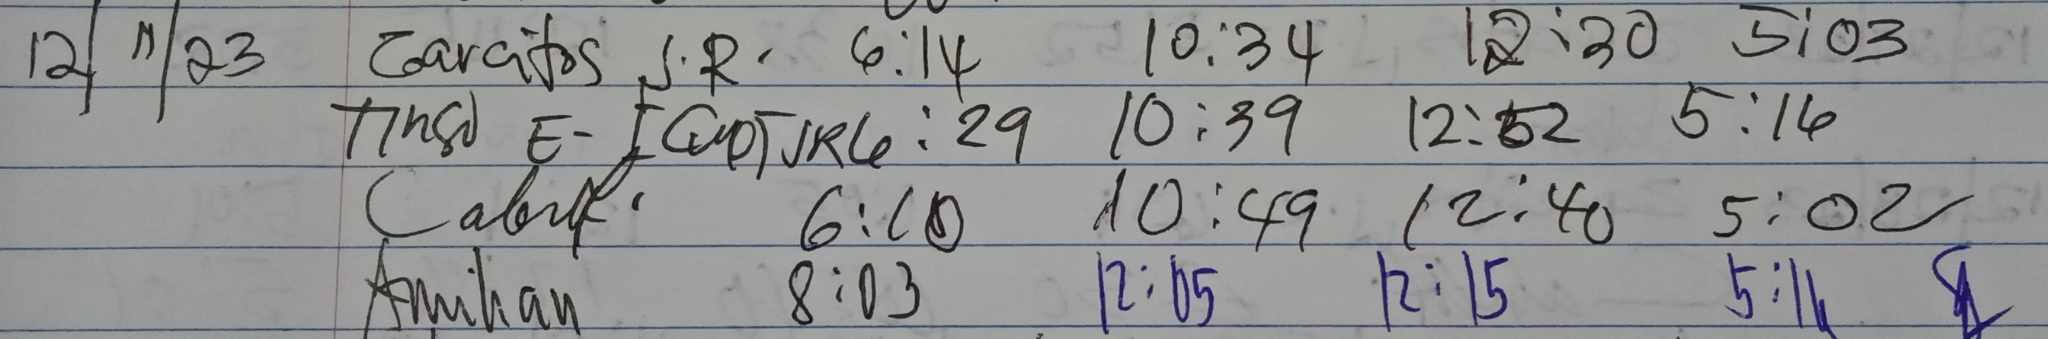 12/11/23 Zarcitos J.R. 6:14 10:34 12:30 5:03
E- 6:29 10:39 12:52 5:16
6:10 10:49 12:40 5:02
Amihan 8:03 12:05 12:15 5:16